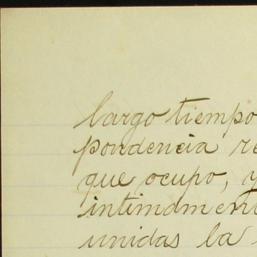 largo tiempo
pondencia re
que ocupo, y
intimamen
unidas la